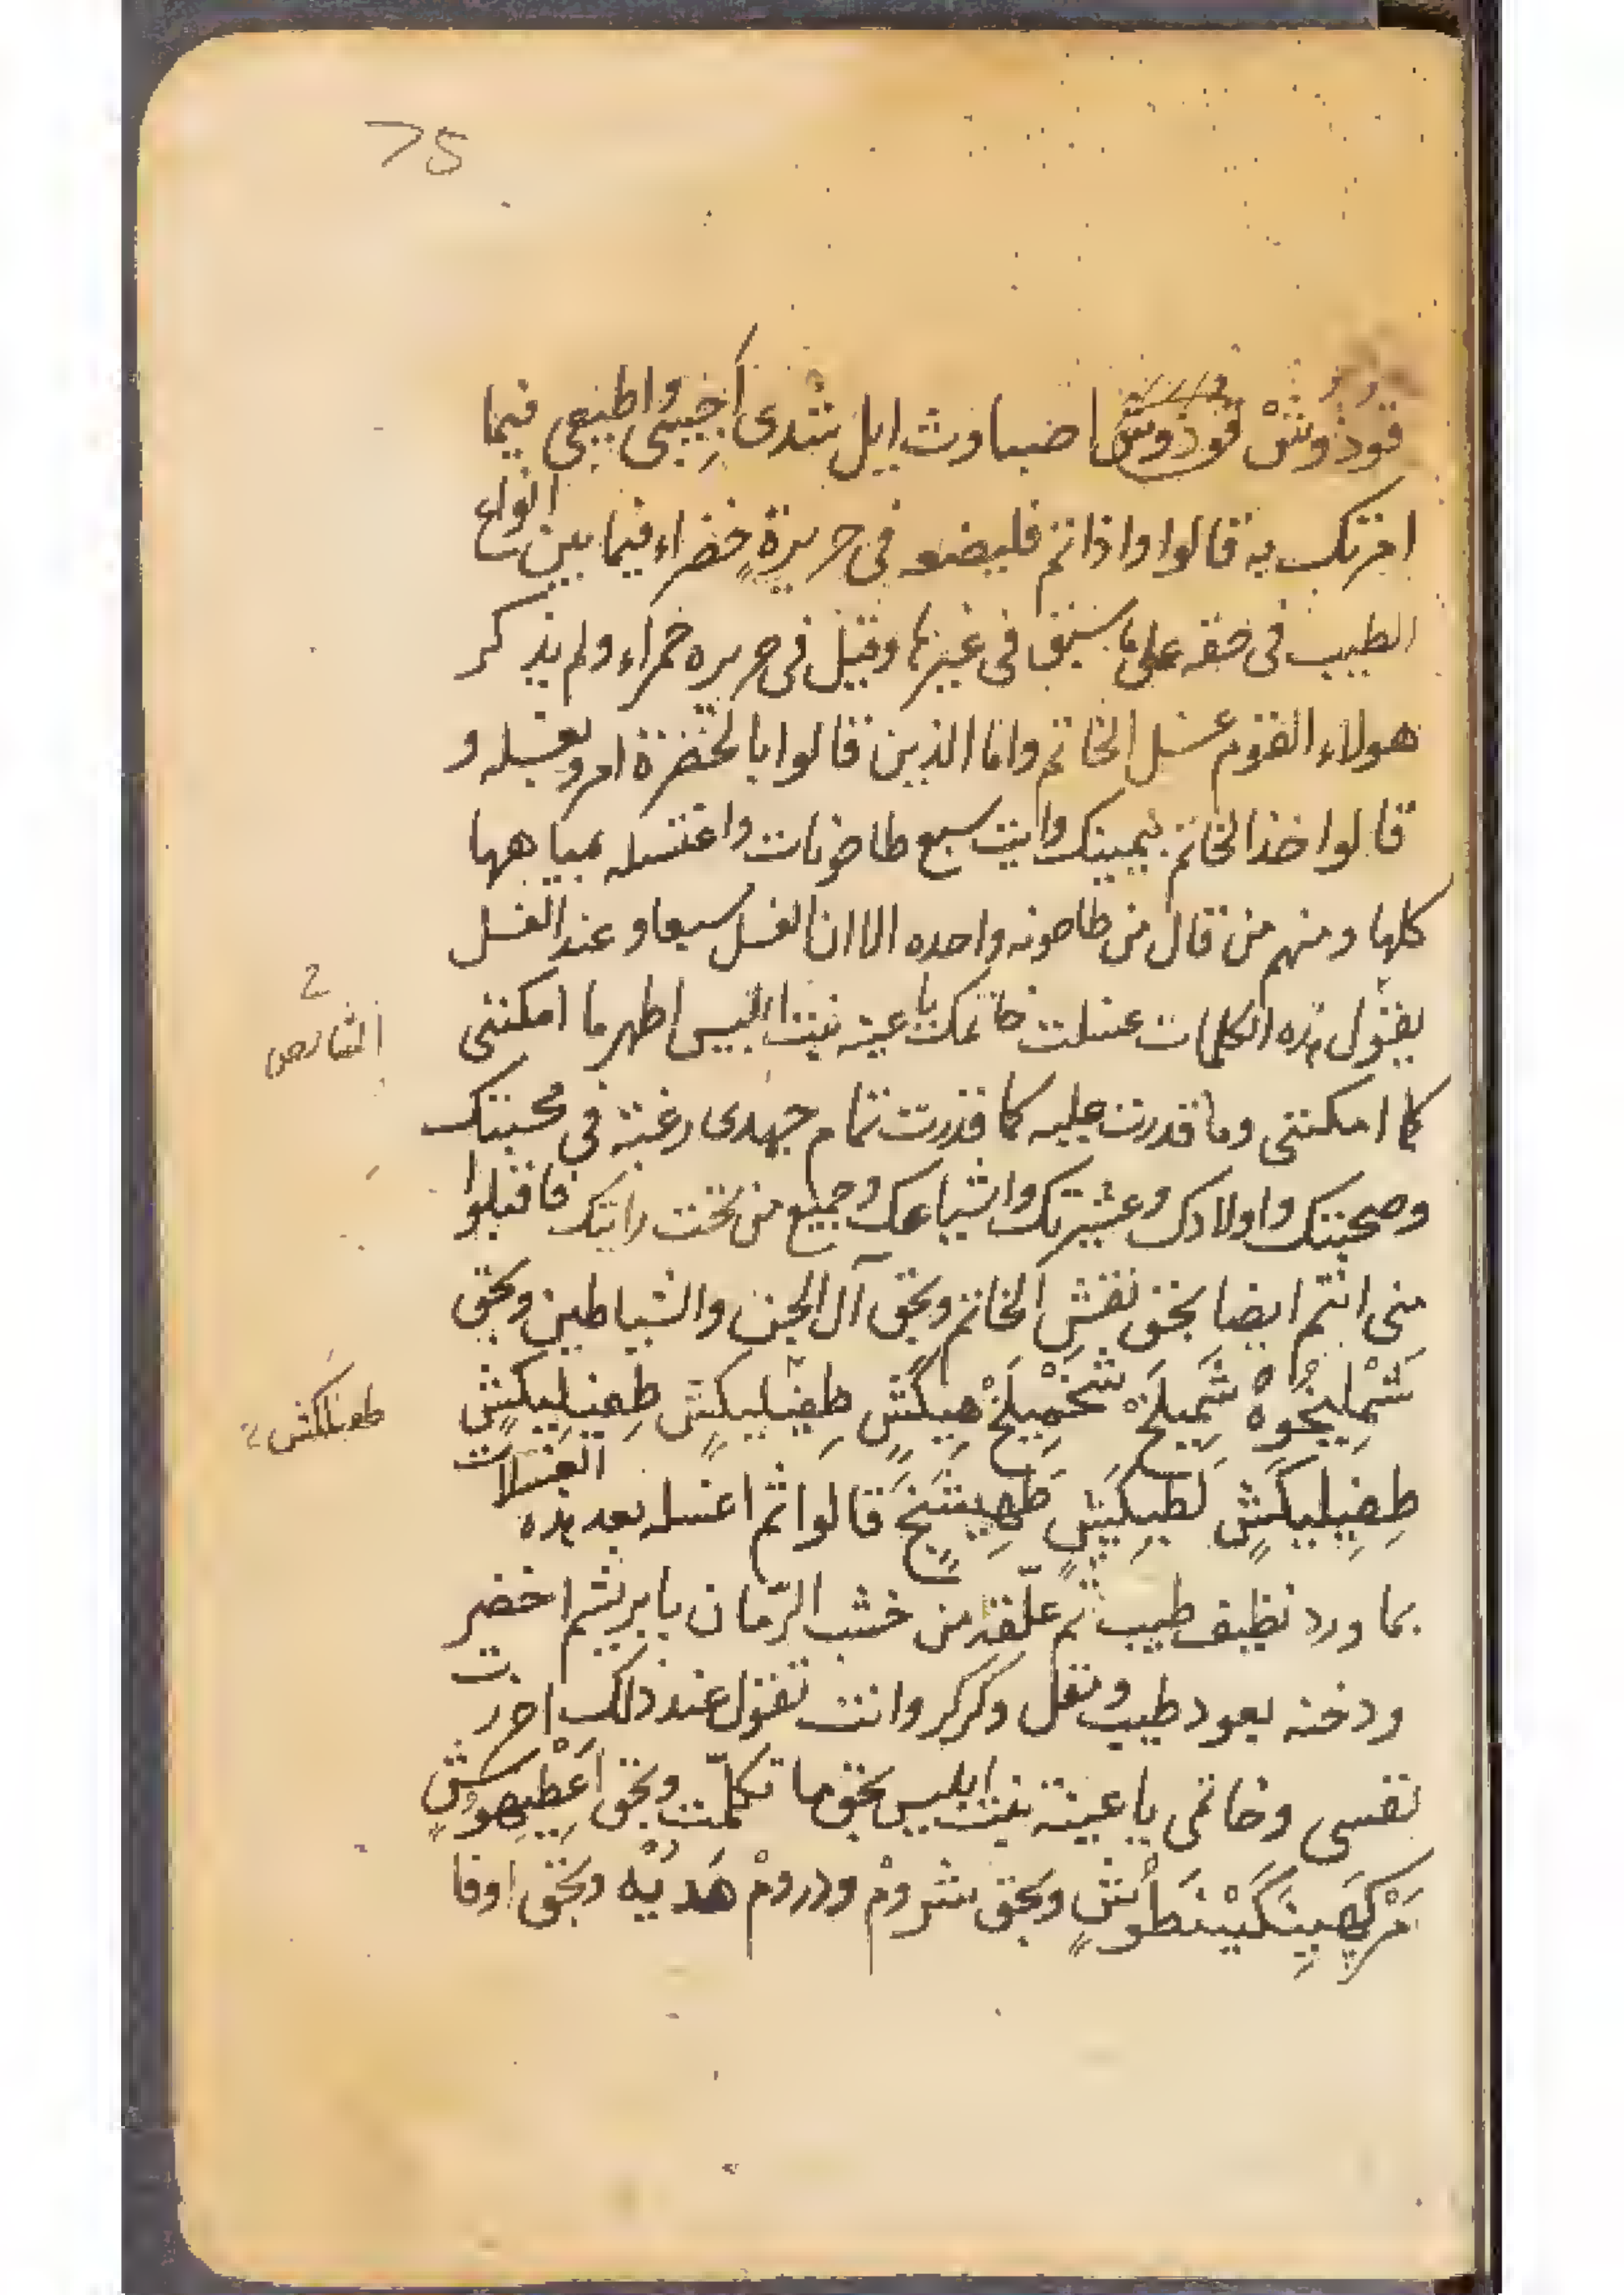 75
قوذوشْ قوذوش اضباوث ايل شدى اجيبى واطيعى فيما
امرتك به قالوا واذا تم فليضعه فى حريرةٍ خضراء فيما بين انواع
الطيب فى حقه على ما سبق فى غيرها وقيل فى حريره حمراء ولم يذكر
هولاء القوم غسل الخاتم واما الذين قالوا بالخضرة امروا بغسله و
قالوا خذ الخاتم بيمينك وايت سبع طاحونات واغتسله بمياهها
كلها ومنهم من قال من طاحونه واحده الا ان الغسل سبعا وعند الغسل
يقول هذه الكلمات غسلت خاتمك يا عينه بنت ابليس اطهر ما امكننى
كما امكننى وما قدرت عليه كما قدرت تمام جهدى رغبة فى محبتك
وصحبتك واولادك وعشيرتك واشياعك وجميع من تحت رايتك فاقبلوا
منى انتم ايضا بحق نقش الخاتم وبحق آل الجن والشياطين وبحق
شَمْلِيخُوهْ شَمِيلَخْ شَخْمِيلَخْ هِيكَشٍ طِفِيلِيكَشٍ طِعِيلِيكَشٍ
طِفِيلِيكَشٍ لَطِيكَيشٍ طَهِيشَخَ قالوا ثم اغسله بعد هذه الغسلات
بماورد نظيف طيب ثم علّقه من خشب الرّمان بابريشم اخضر
ودخنه بعود طيب ومقل وكركر وانت تقول عند ذلك احرزت
نفسى وخاتمى يا عينة بنت ابليس بحق ما تكلّمت وبحق اَعْطِيهوشٍ
وبحق شروم ودرومْ هَديّه وبحق اوفا